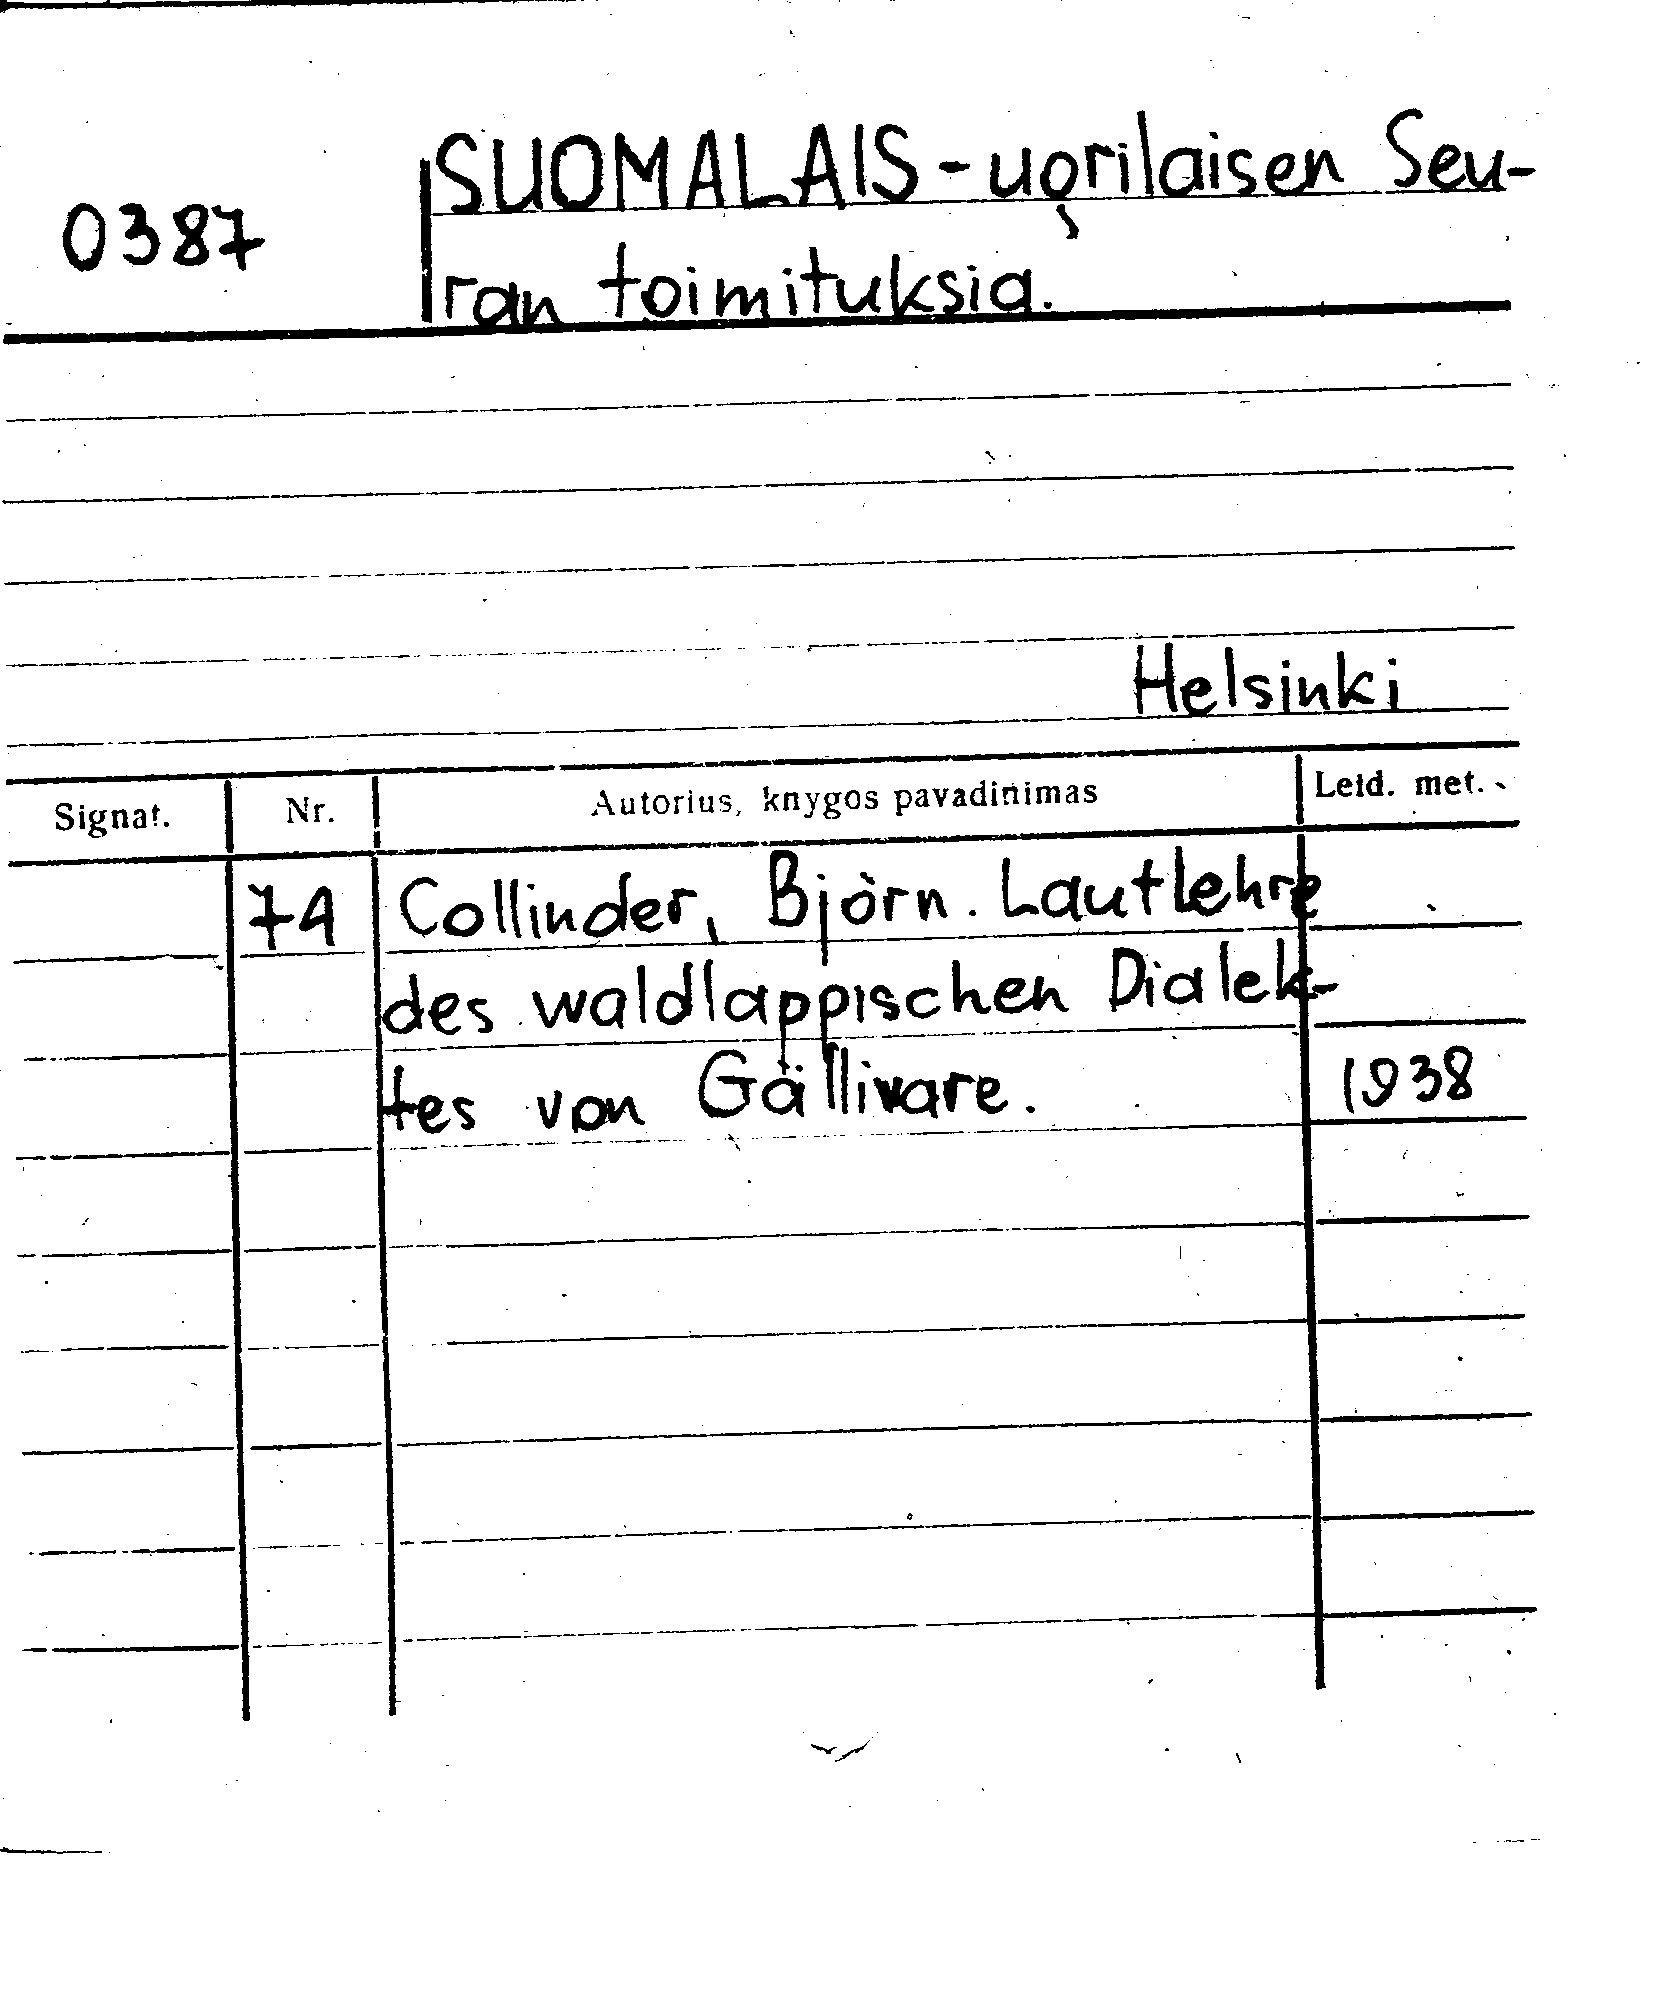 SUOMALAIS-ugrilaisen Seu-
0387
ran toimituksia.
Helsinki
Signat. Nr. Autorius, knygos pavadinimas Leid. met.
74 Collinder, Björn. Lautlehre
des waldlappischen Dialek-
tes von Gällivare. 1938